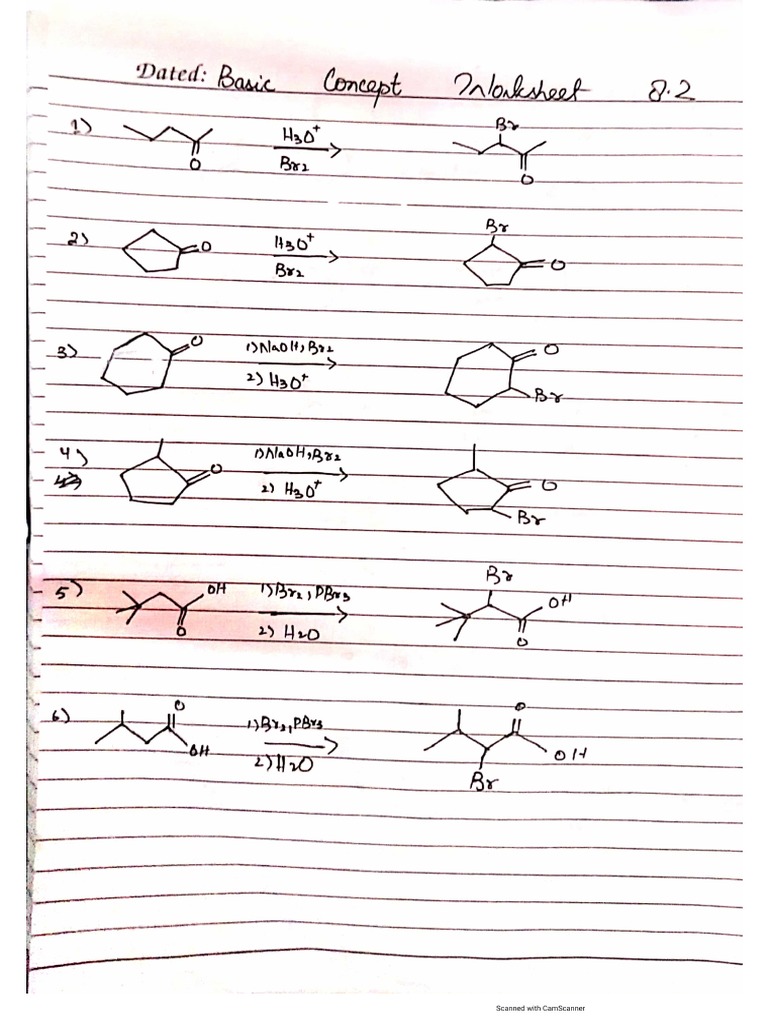 Dated: Basic Concept Worksheet 8.2
1) O H3O+ Br2 Br O
2) O H3O+ Br2 Br O
3) O 1) NaOH, Br2 2) H3O+ O Br
4) O 1) NaOH, Br2 2) H3O+ O Br
5) OH O 1) Br2, PBr3 2) H2O Br OH O
6) O OH 1) Br2, PBr3 2) H2O O OH Br
Scanned with CamScanner